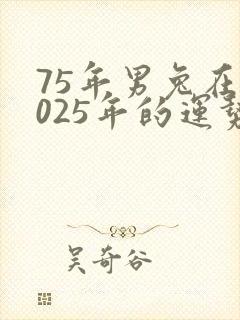 75年男兔在
025年的運勢
吴奇谷